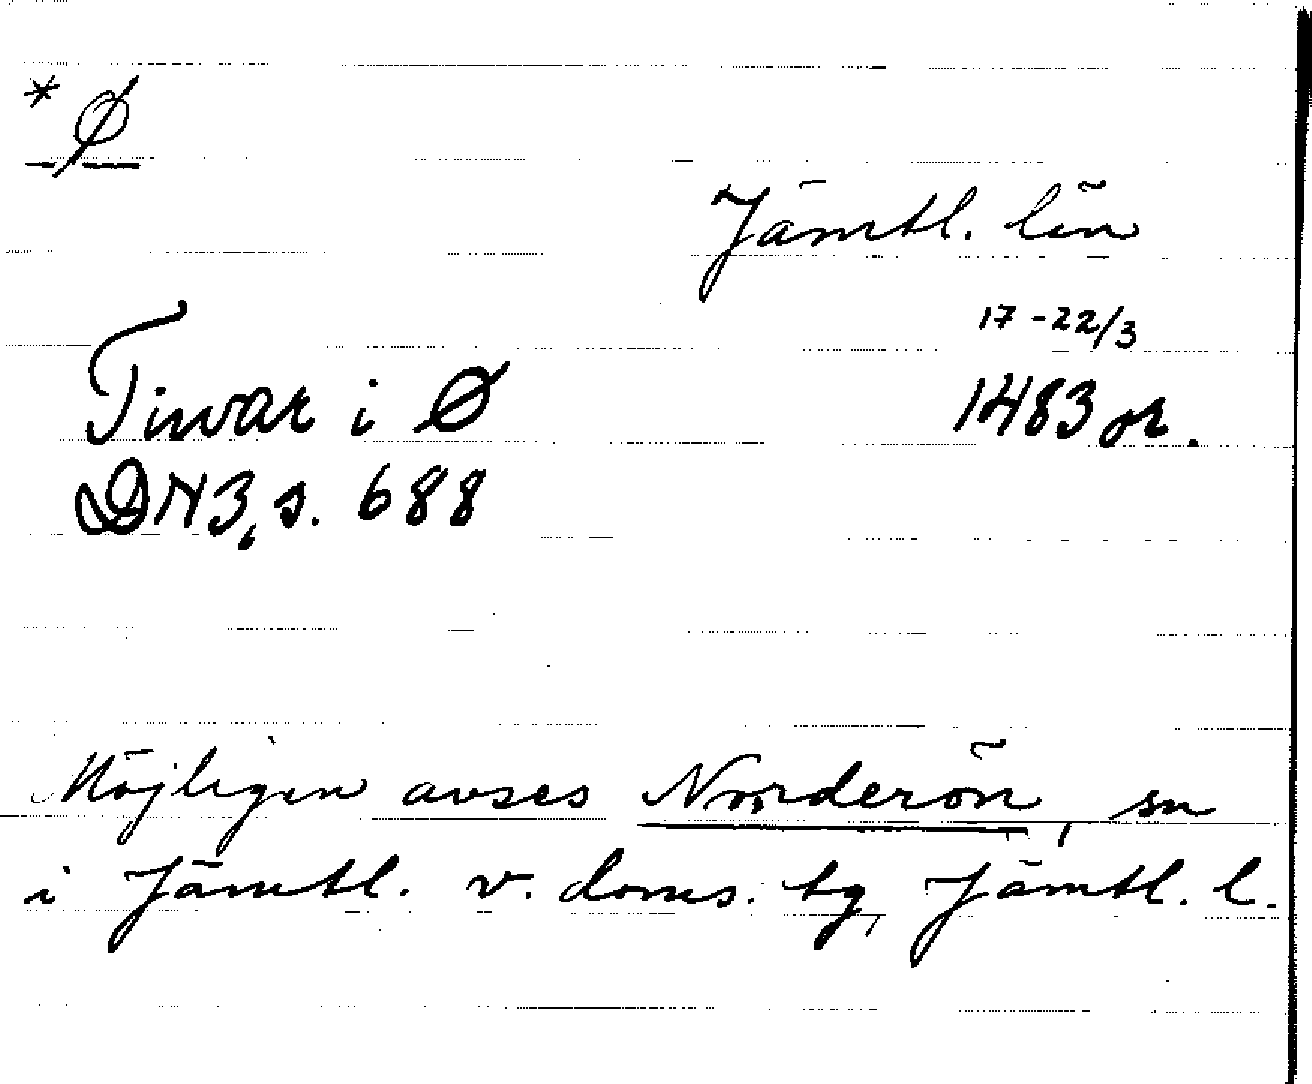 * Ø
Jämtl. län
17-22/3
Tiwar i Ø 1483 or.
DN3, s. 688
Möjligen avses Norderön, sn
i Jämtl. v. doms. tg, Jämtl. l.